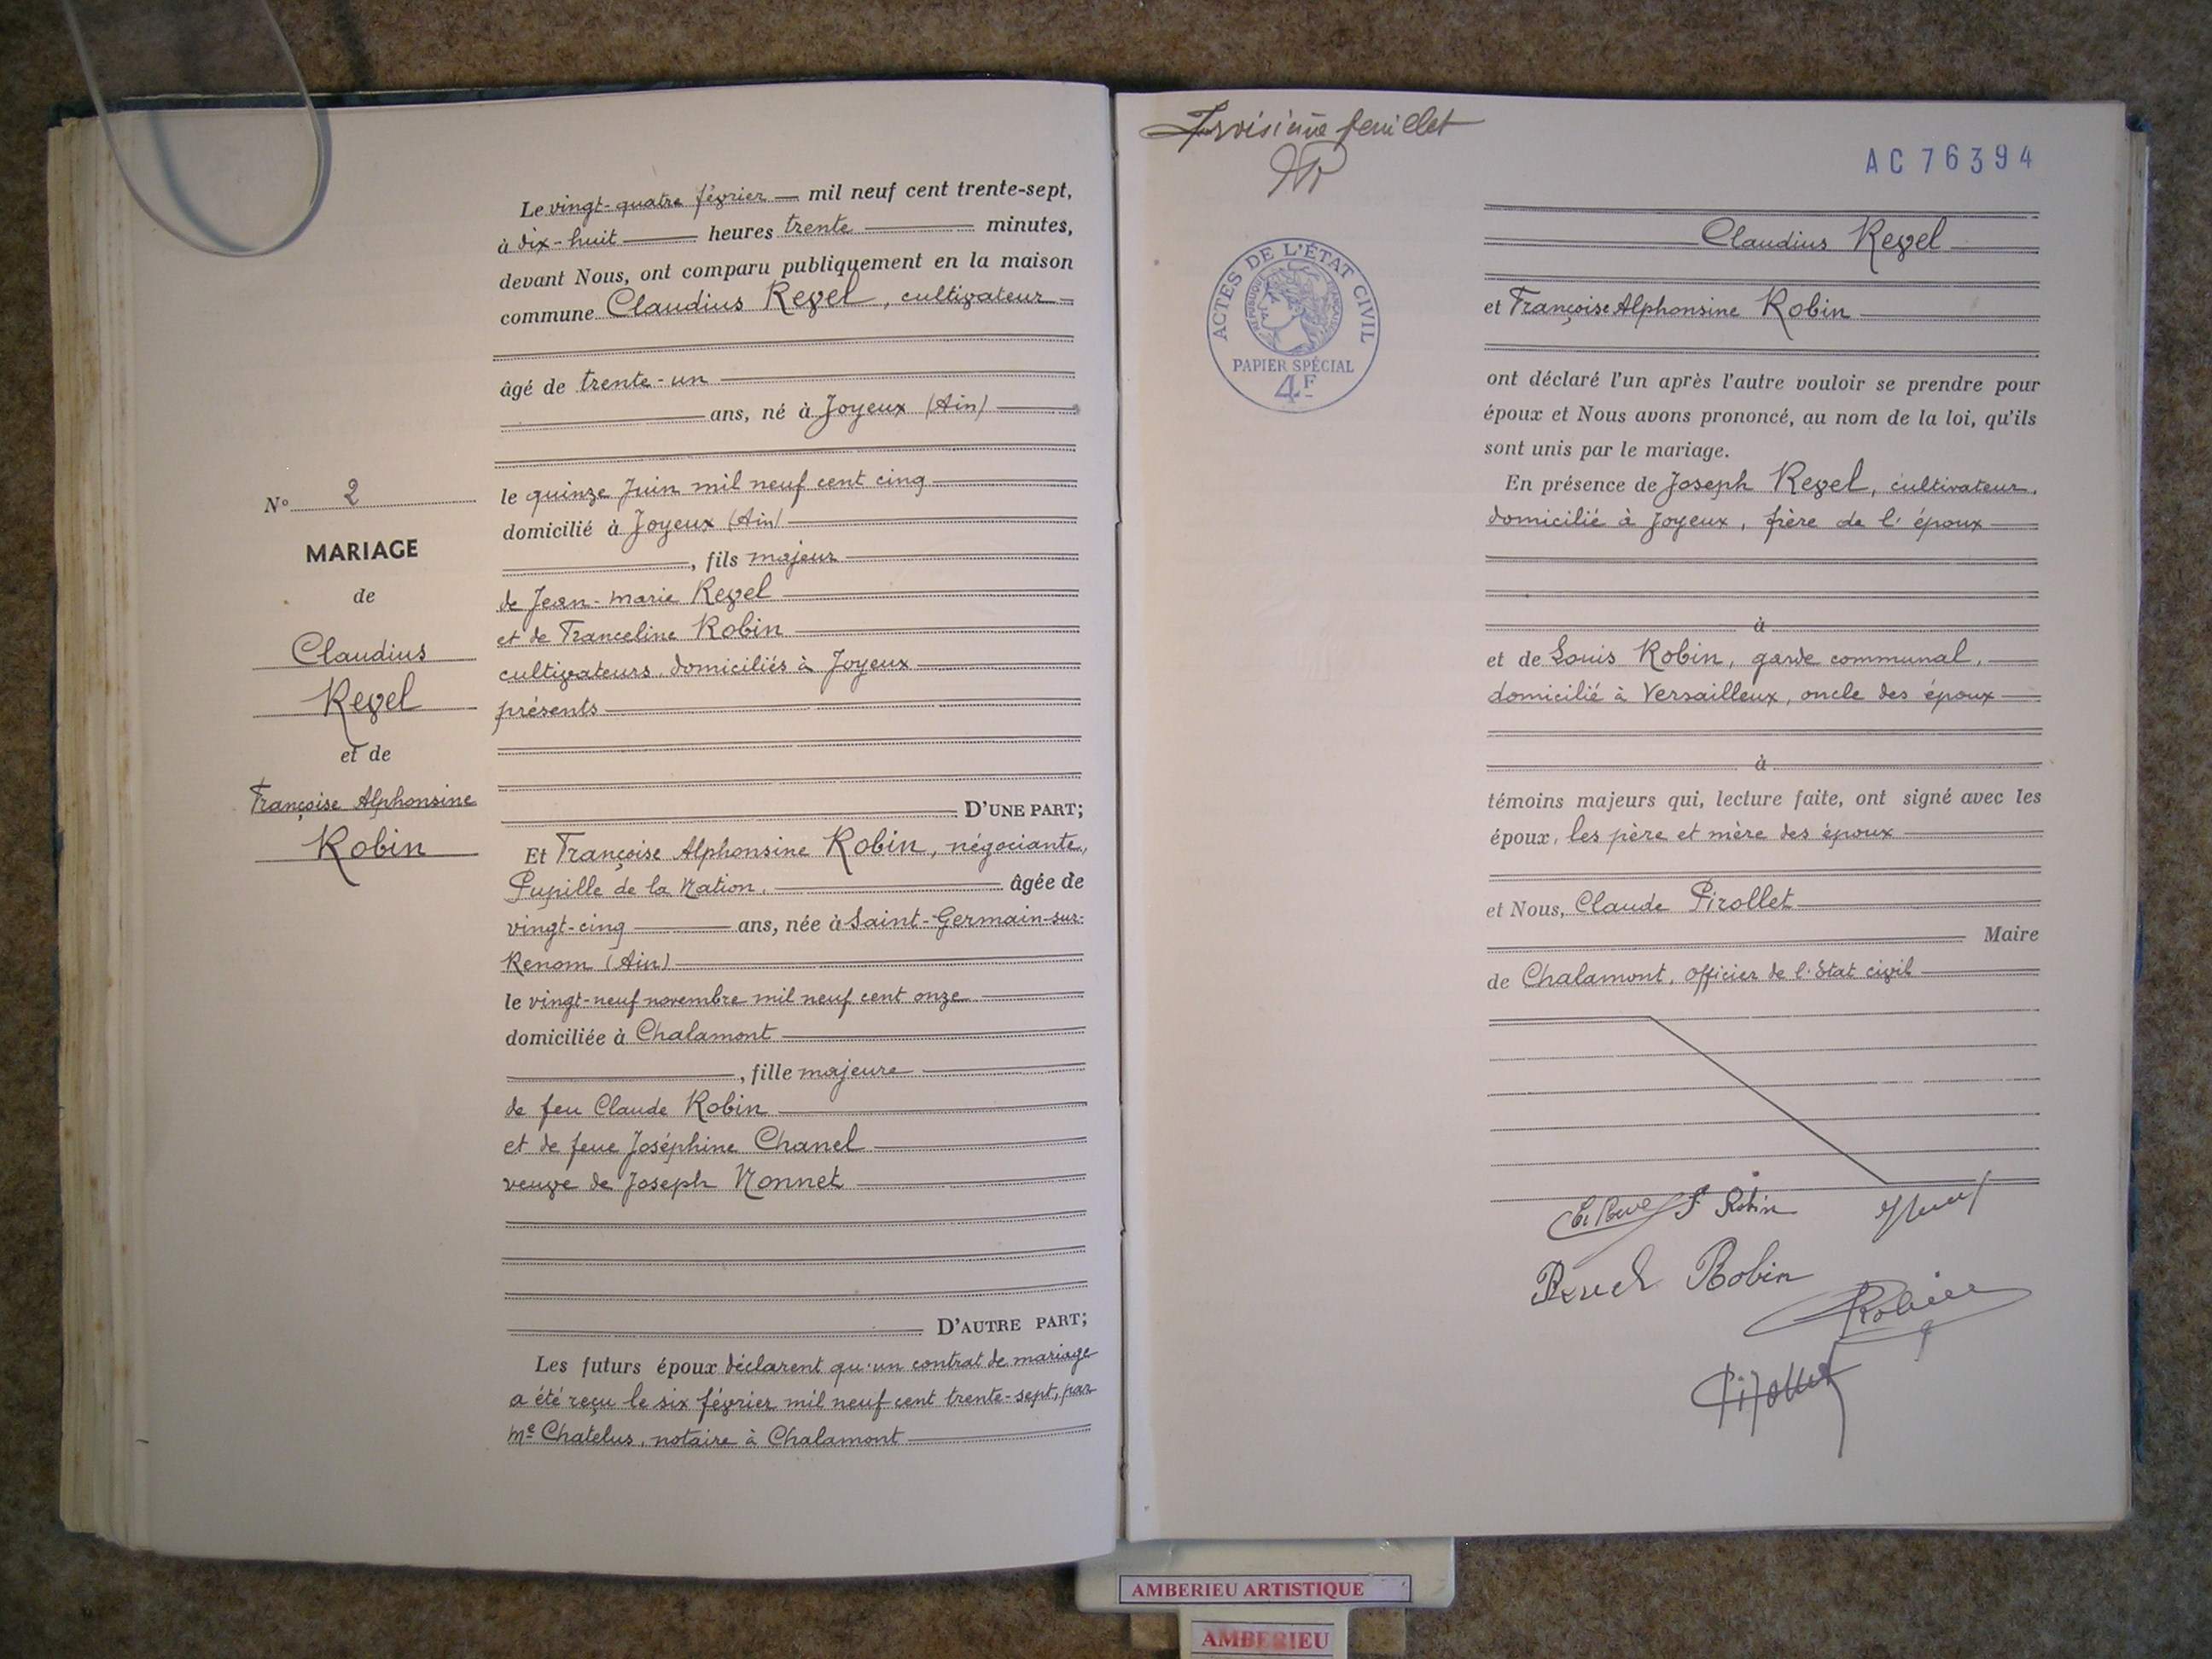 Le vingt-quatre février mil neuf cent trente-sept,
à dix-huit heures trente minutes,
devant Nous, ont comparu publiquement en la maison
commune Claudius Revel, cultivateur
âgé de trente-un
ans, né à Joyeux (Ain)
le quinze Juin mil neuf cent cinq
domicilié à Joyeux (Ain)
, fils majeur
de Jean-Marie Revel
et de Franceline Robin
cultivateurs, domiciliés à Joyeux
présents
D'UNE PART;
Et Françoise Alphonsine Robin, négociante,
Pupille de la Nation, âgée de
vingt-cinq ans, née à Saint-Germain-sur-
Renom (Ain)
le vingt-neuf novembre mil neuf cent onze
domiciliée à Chalamont
, fille majeure
de feu Claude Robin
et de feue Joséphine Chanel
veuve de Joseph Monnet
D'AUTRE PART;
Les futurs époux déclarent qu'un contrat de mariage
a été reçu le six février mil neuf cent trente-sept, par
Me Chatelus, notaire à Chalamont
N° 2
MARIAGE
de
Claudius
Revel
et de
Françoise Alphonsine
Robin
Troisième feuillet
AC 76394
ACTES DE L'ÉTAT CIVIL
RÉPUBLIQUE FRANÇAISE
PAPIER SPÉCIAL
4F
Claudius Revel
et Françoise Alphonsine Robin
ont déclaré l'un après l'autre vouloir se prendre pour
époux et Nous avons prononcé, au nom de la loi, qu'ils
sont unis par le mariage.
En présence de Joseph Revel, cultivateur,
domicilié à Joyeux, frère de l'époux
à
et de Louis Robin, garde communal,
domicilié à Versailleux, oncle des époux
à
témoins majeurs qui, lecture faite, ont signé avec les
époux, les père et mère des époux
et Nous, Claude Pirollet
Maire
de Chalamont, officier de l'Etat civil
F Robin
Revel Robin
Robin
Pirollet
AMBERIEU ARTISTIQUE
AMBERIEU